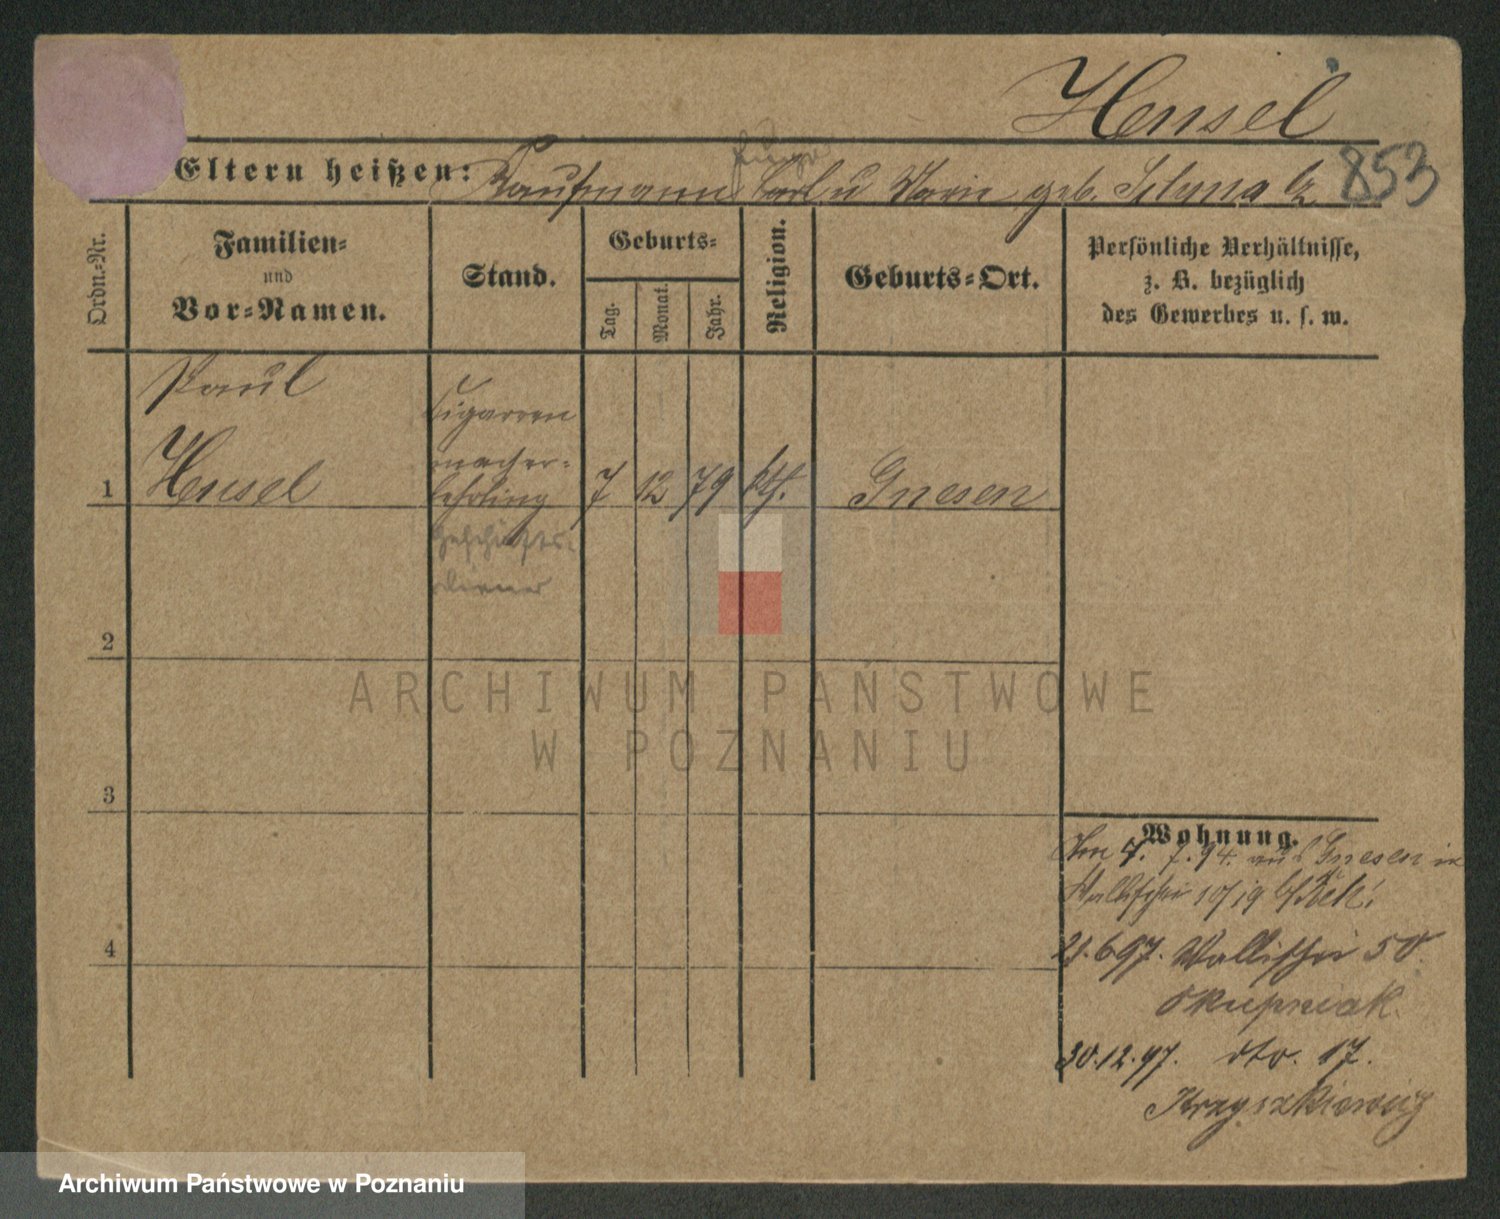 Hensel
853
Eltern heißen: Kaufmann Carl u Marie geb.
Ordn.-Nr.
Familien-
und
Vor-Namen.
Stand.
Geburts-
Tag.
Monat.
Jahr.
Religion.
Geburts-Ort.
Persönliche Verhältnisse,
z. B. bezüglich
des Gewerbes u. s. w.
Paul
Cigarren
macher-
1 Hensel lehrling 7 12 79 kth. Gnesen
Geschäfts-
diener
2
ARCHIWUM PAŃSTWOWE
W POZNANIU
3
Wohnung.
7. 94. aus Gnesen in
Wallischei 10/19
4
21.6.97. Wallischei 50.
Skupniak.
30.12.97. dto. 17.
Krzyszkiewicz
Archiwum Państwowe w Poznaniu